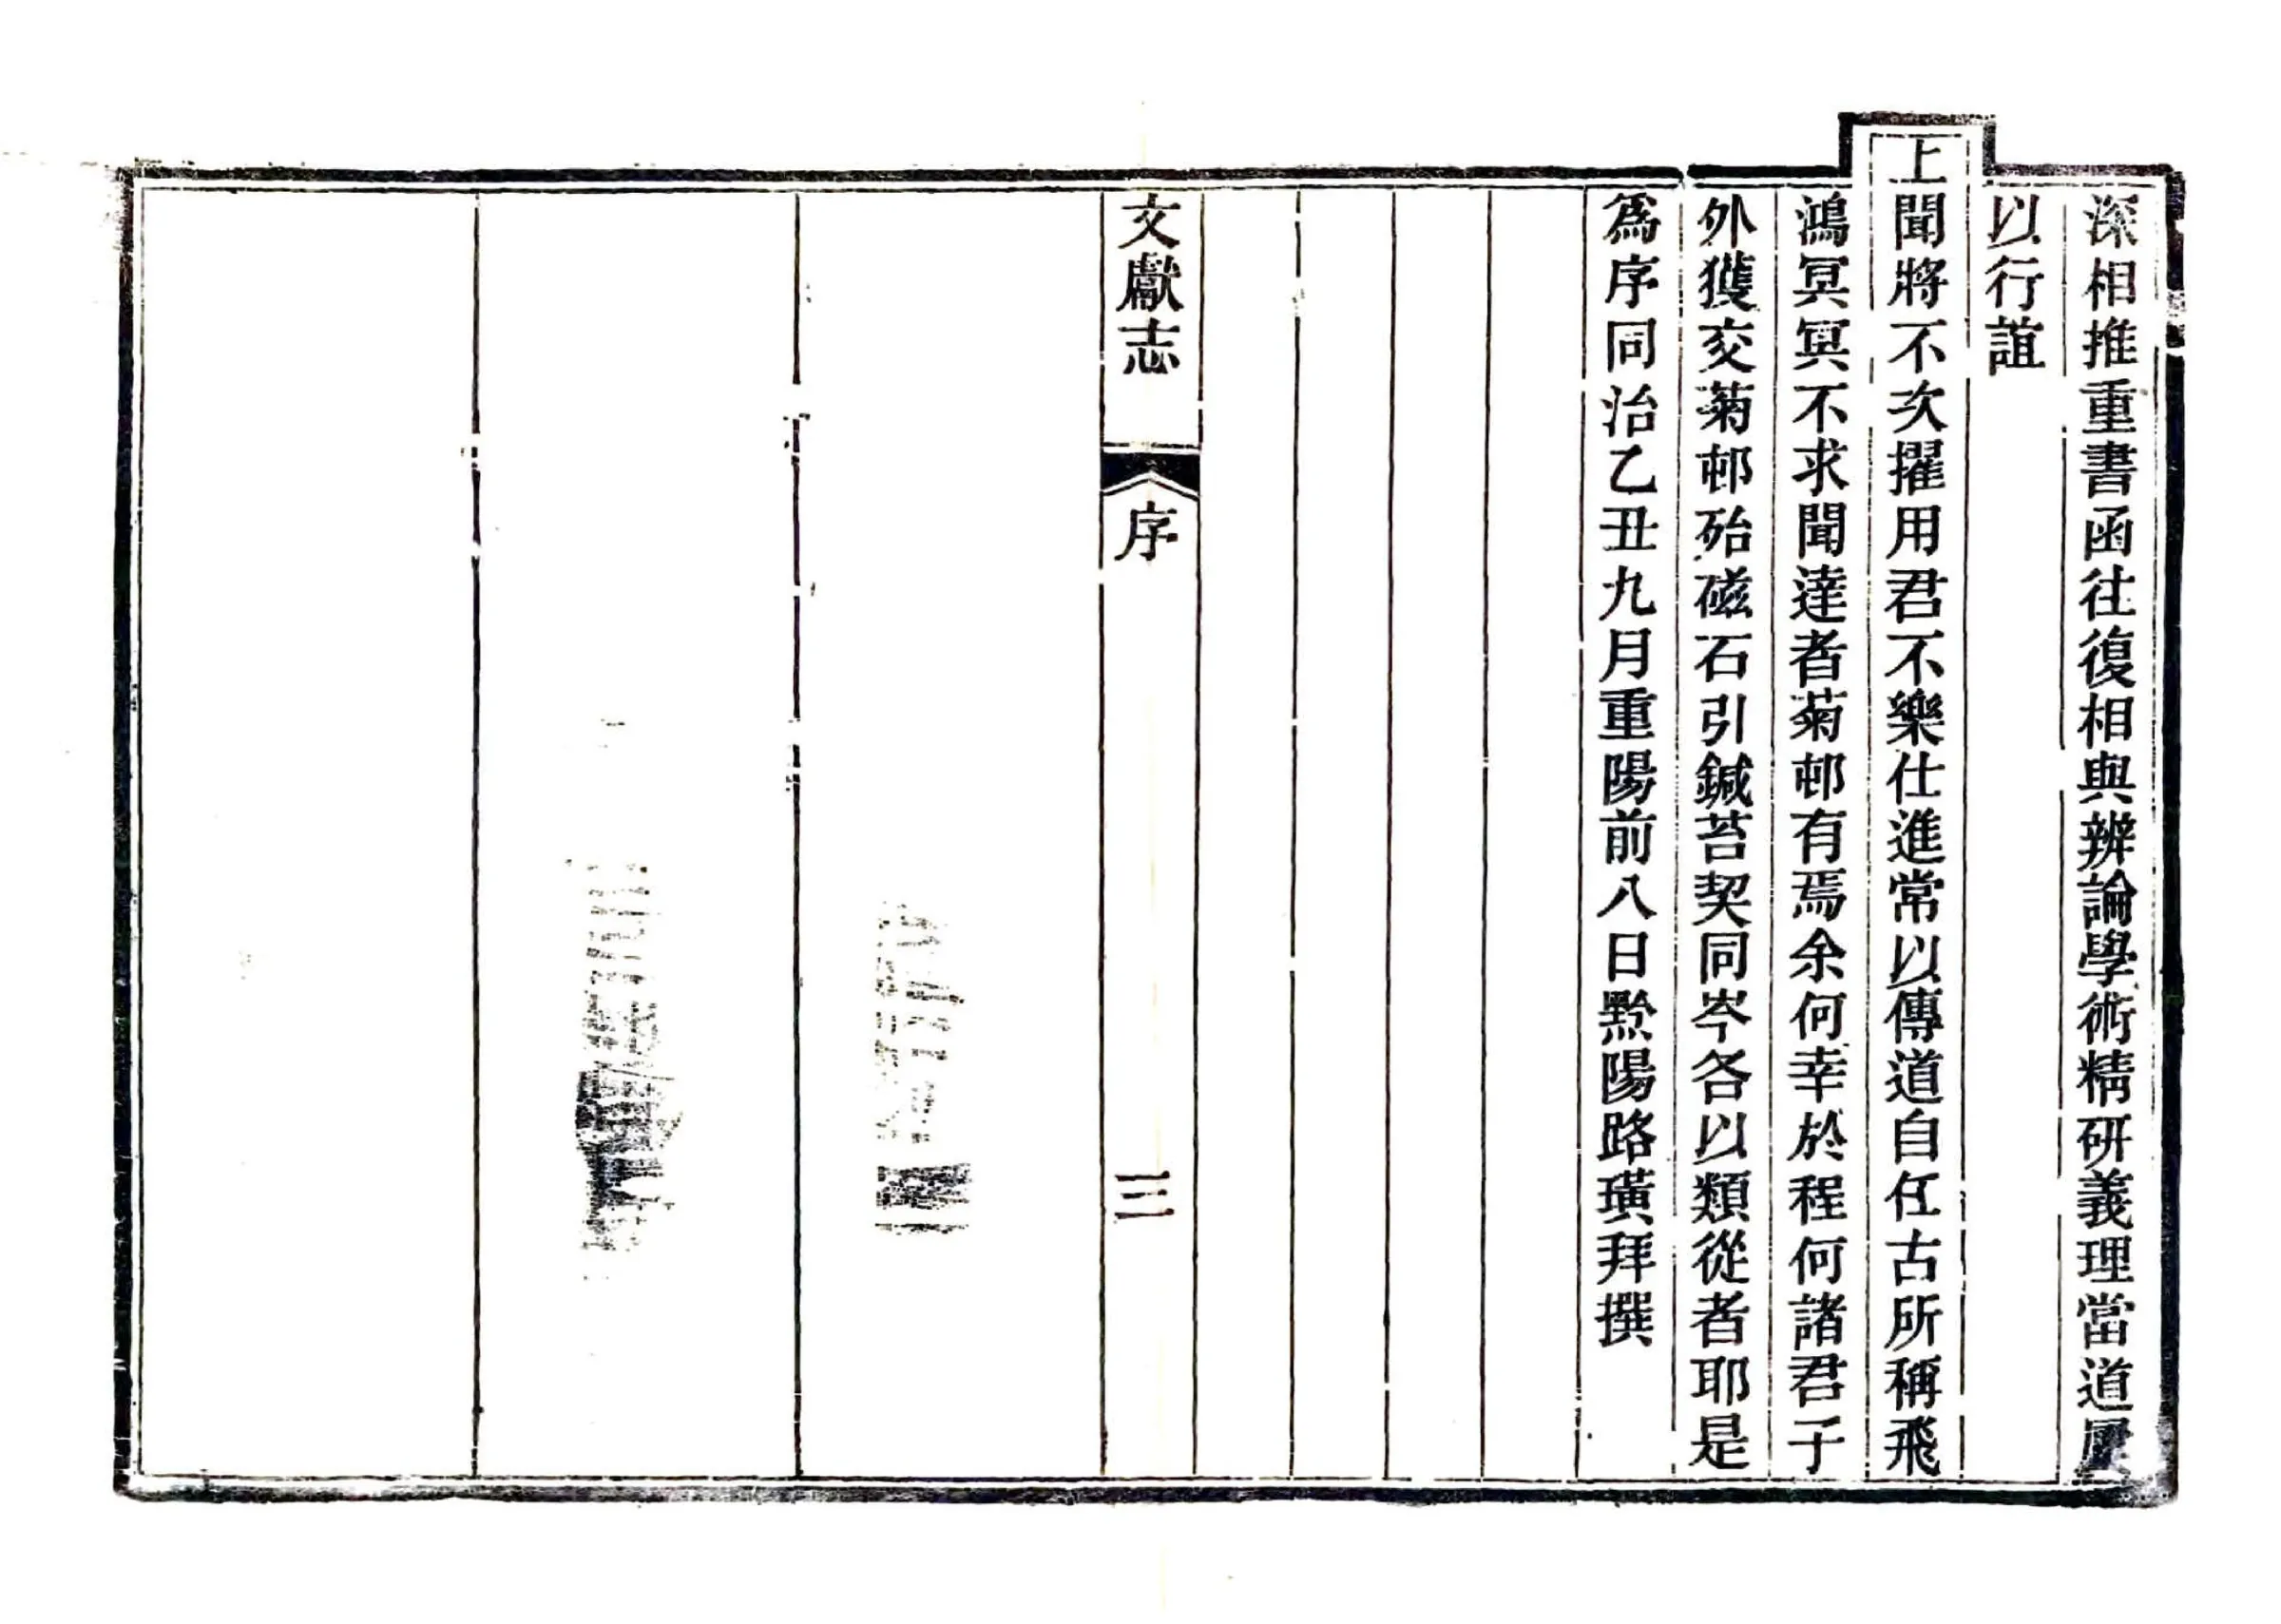 深相推重書函往復相與辨論學術精研義理當道屢
以行誼
上聞將不次擢用君不樂仕進常以傳道自任古所稱飛
鴻冥冥不求聞達者菊邨有焉余何幸於程何諸君子
外獲交菊邨殆磁石引鍼苔契同岑各以類從者耶是
爲序同治乙丑九月重陽前八日黟陽路璜拜撰
文獻志
序
三